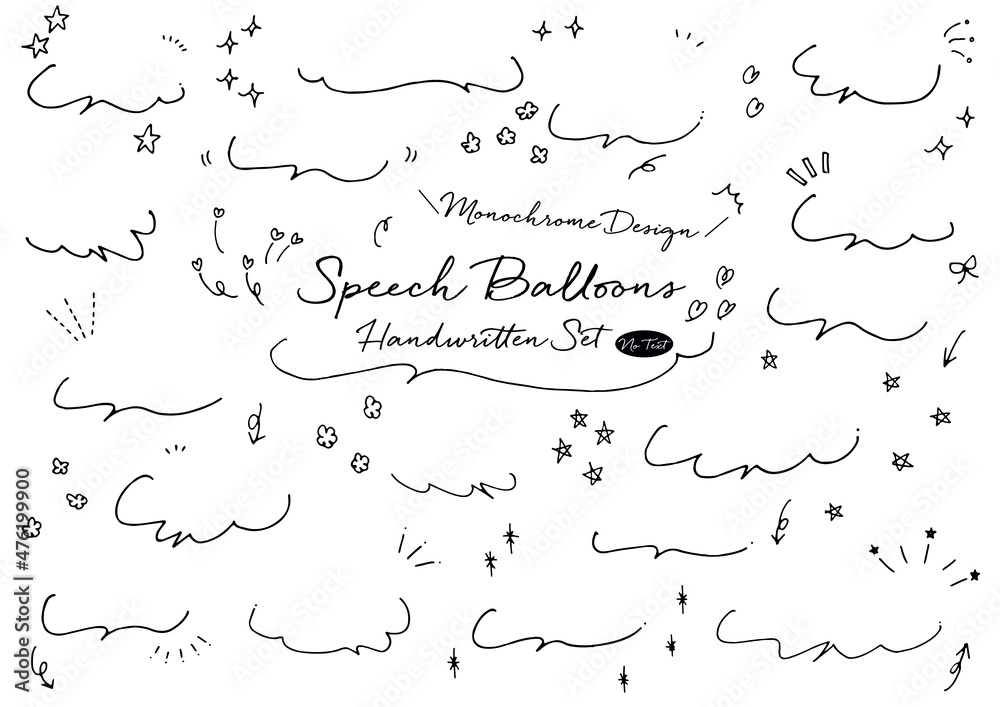 Monochrome Design
Speech Balloons
Handwritten Set No Text
Adobe Stock | #476199900